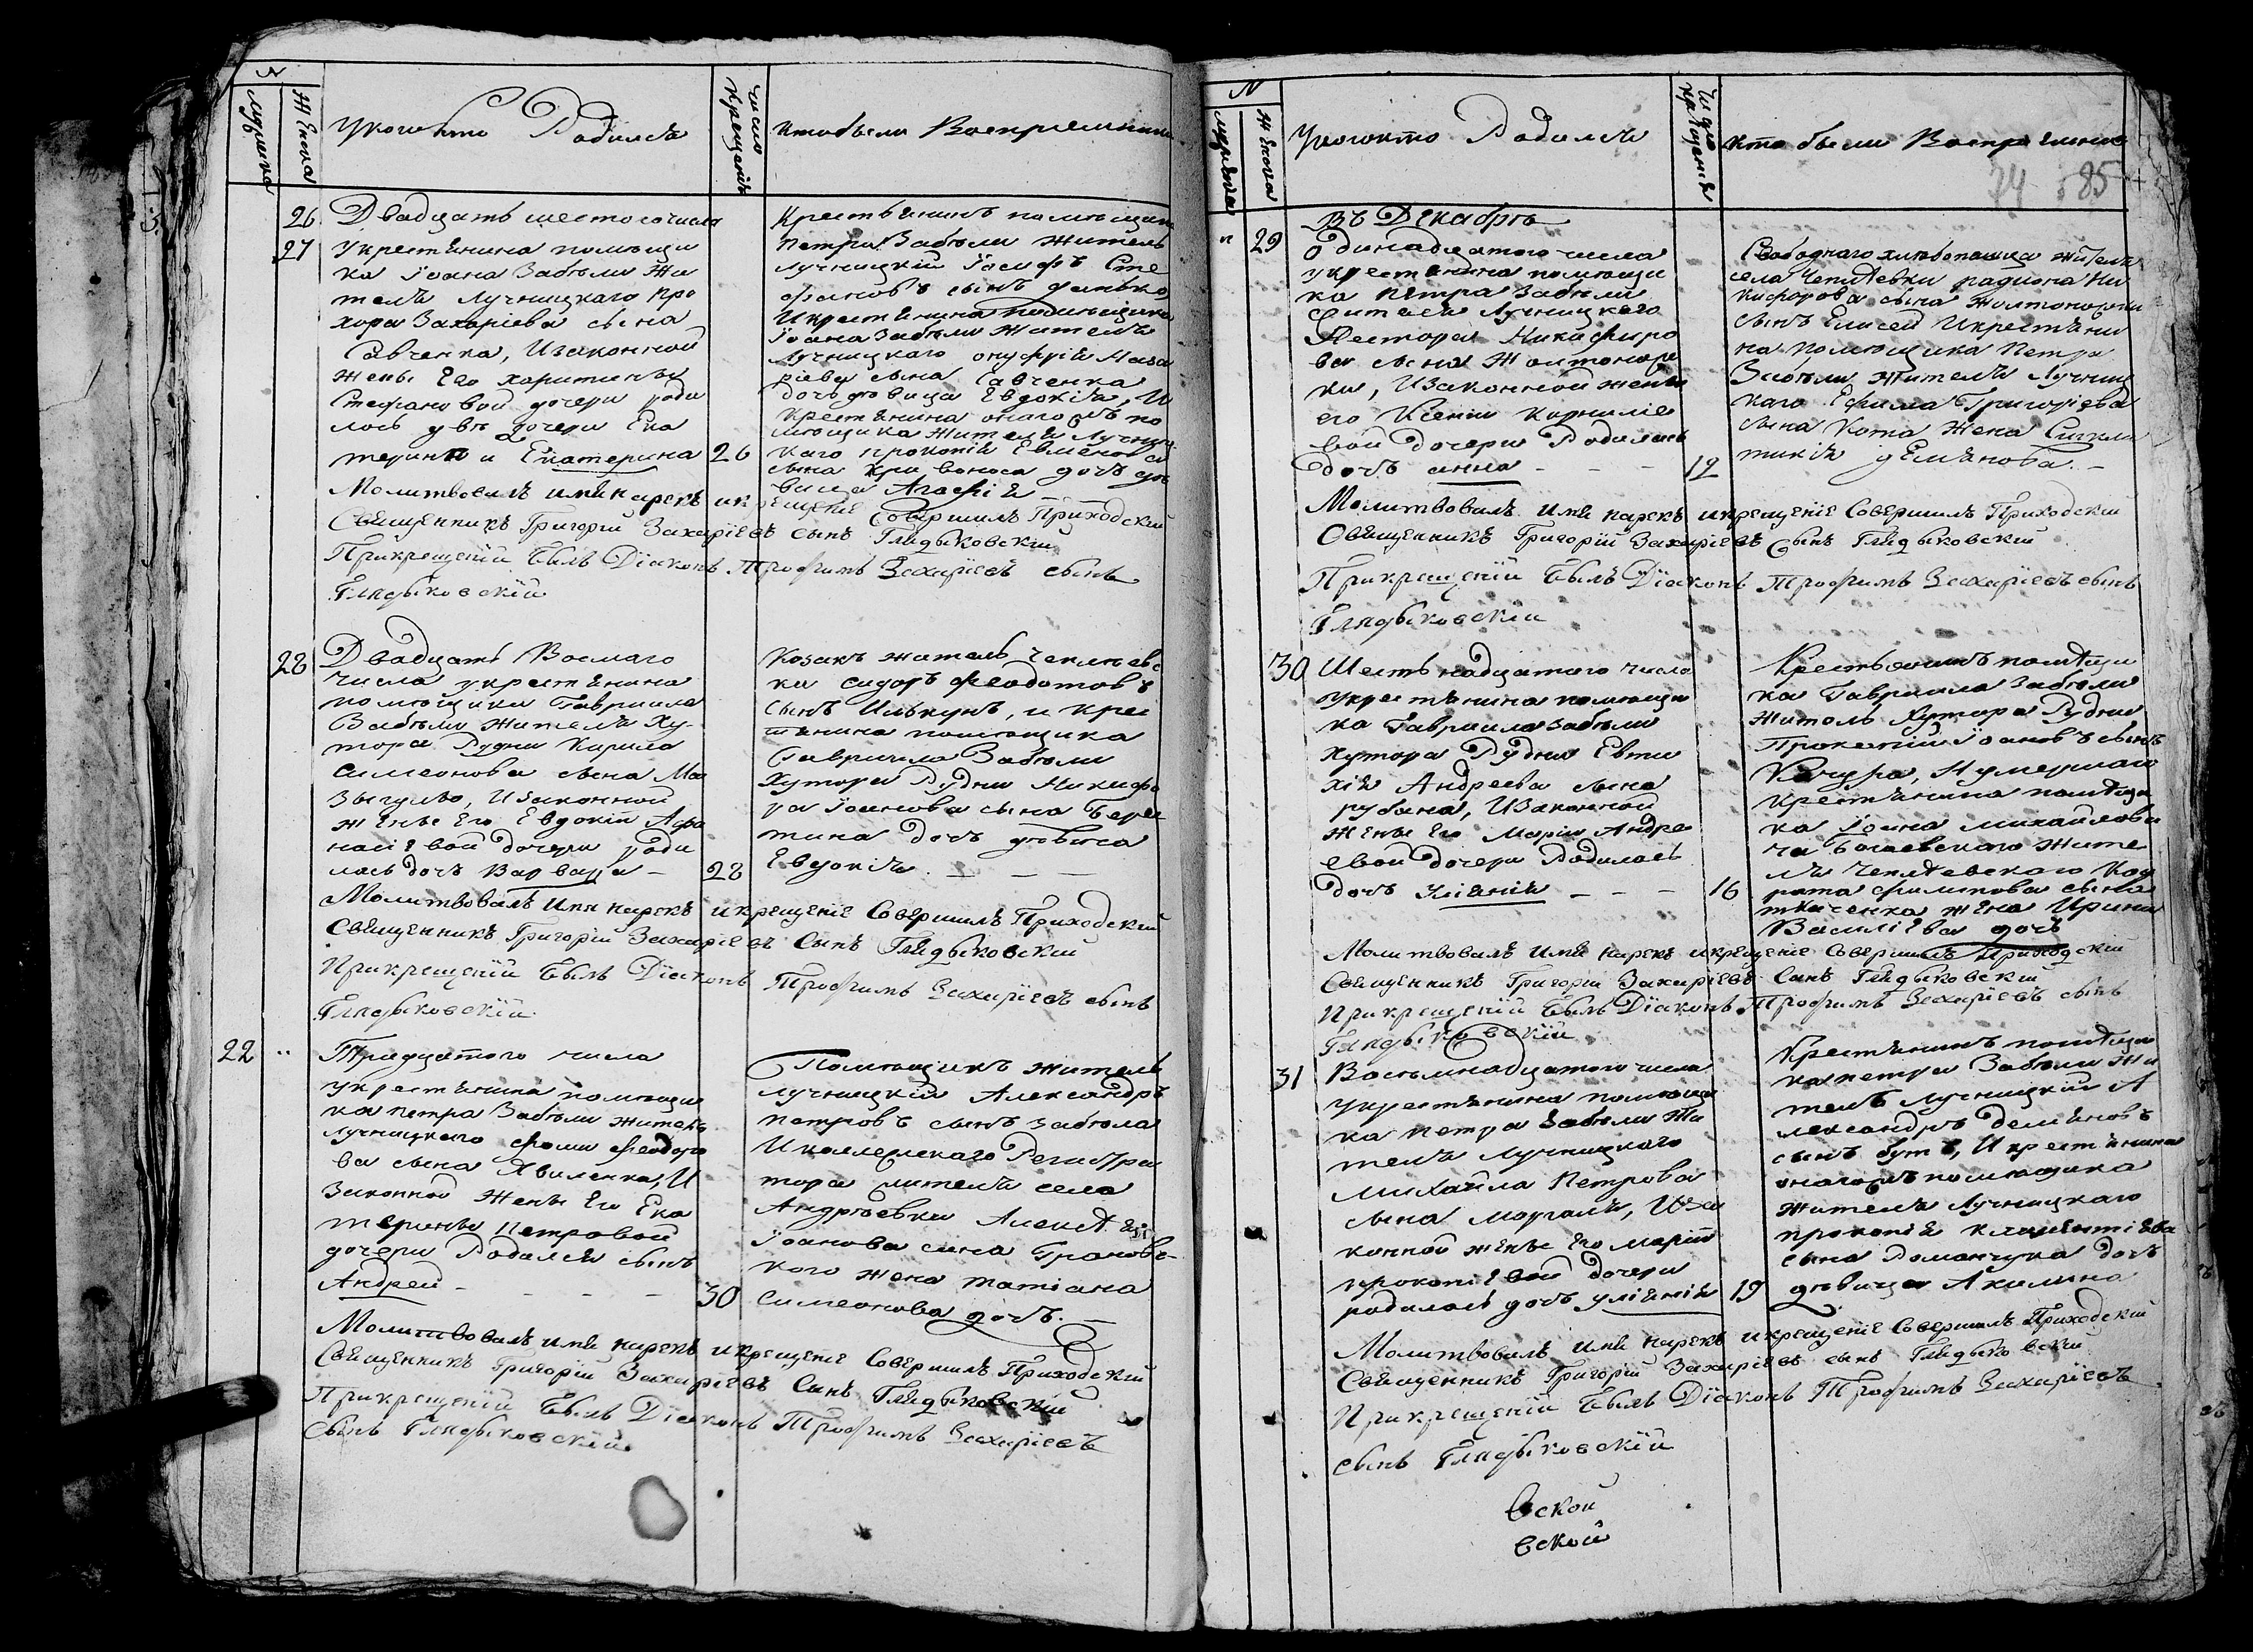 N
мужеска
Женска
Укого кто Родился
число крещения
кто были Восприемники
26
27
Двадцать шестого числа
укрестьянина помѣщи
ка Іоана Забѣлы Жи
теля Лучницкаго Про
хора Захаріева сына
Савченка, Изаконной
жены Его харитины
Стефановой дочери роди
лось двѣ дочери Ека
терина и Екатерина 26
Крестьянинъ помѣщика
Петра Забѣлы житель
Лучницкій Іосифъ Сте
фановъ сынъ
Икрестьянина помѣщика
Іоана Забѣлы жителя
Лучницкаго онуфрія Заха
ріева сына Савченка
дочь дѣвица Евдокія, И
крестьянина онагожъ по
мѣщика жителя Лучниц
каго прокопія Евменова
сына кривоноса дочь дѣ
вица Агафія
Молитвовалъ имя нарекъ икрещеніе Совершилъ Приходскій
Священникъ Григорій Захаріевъ сынъ Глядыковскій
Прикрещеніи былъ Діаконъ Трофимъ Захаріевъ сынъ
Глядыковскій
28
Двадцать Восмаго
числа укрестьянина
помѣщика Гавриила
Забѣлы жителя Ху-
тора Рудни Кирила
Симеонова сына Ма
зыгула, Изаконной
жены Его Евдокіи Афа
насіевой дочери роди
лась дочь Варвара – 28
Козакъ житель чеплѣевс
ка сидоръ феодотовъ
сынъ Илькунъ, и крес
тянина помѣщика
Гавриила Забѣлы
Хутора Рудни Никифо
ра Іоанова сына Бере
тина дочь дѣвица
Евдокія. – – –
Молитвовалъ Имя нарекъ икрещеніе Совершилъ Приходскій
Священникъ Григорій Захаріевъ Сынъ Глядыковскій
Прикрещеніи былъ Діаконъ Трофимъ Захаріевъ сынъ
Глядыковскій
22
Тридцатого числа
укрестьянина помѣщи
ка петра Забѣлы жителя
Лучницкаго фомы феодоро
ва сына Явиленка, И
законной жены Его Ека
терины петровой
дочери Родился сынъ
Андрей – – – – 30
Помѣщикъ житель
лучницкій Александръ
петровъ сынъ забѣла
Иколлежскаго Регистра
тора жителя села
Андрѣевки Алексѣя
Іоанова сина Грановс-
кого жена татіана
Симеонова дочь. –
Молитвовалъ имя нарекъ икрещеніе Совершилъ Приходскій
Священникъ Григорій Захаріевъ Сынъ Глядыковскій
Прикрещеніи былъ Діаконъ Трофимъ Захаріевъ
Сынъ Глядыковскій
N
мужеска
Женска
Укого кто Родился
Число крещения
кто были Восприемник
74 85
29
Въ Декабрѣ
Одинадцатого числа
укрестянина помѣщи
ка петра забѣлы
жителя Лучницкого
Нестора Никифоро
ва сына Жолтоноже
ки, Изаконной жены
его Ксении корниліе
вой дочери Родилась
дочь анна – – – 12
Свободнаго хлѣбопашца жителя
села Чеплѣевки радиона Ни
кифорова сына Жолтоножки
сынъ Елисей Икрестьяни
на помѣщика петра
Забѣлы жителя Лучниц
каго Ефима Григоріева
сына Кота жена Синкли
тикія дЕмянова. –
Молитвовалъ имя нарекъ икрещеніе Совершилъ Приходскій
Священникъ Григорій Захаріевъ Сынъ Глядыковскій
Прикрещеніи былъ Діаконъ Трофимъ Захаріевъ сынъ
Глядыковскій
30
Шестьнадцатого числа
укрестянина помѣщи
ка Гавриила Забѣлы
хутора Рудни Евти
хія Андреева сына
рубана, Изаконной
жены Его Маріи Андре
евой дочери Родилась
дочь уліянія – – – 16
Крестьянинъ помѣщи
ка Гавриила Забѣлы
житель Хутора Рудни
Прокопій Іоановъ сынъ
Качура, Иумершаго
крестянина помѣщи
ка Іоана михайлови
ча Богаевскаго жите
ля чеплѣевскаго Код
рата филипова сына
ткаченка жена Ирина
Василіева дочь
Молитвовалъ имя нарекъ икрещеніе Совершилъ Приходскій
Священникъ Григорій Захаріевъ Сынъ Глядыковскій
Прикрещеніи былъ Діаконъ Трофимъ Захаріевъ сынъ
Глядыковскій
31
Восьмнадцатого числа
укрестьянина помѣщи
ка петра Забѣлы Жи
теля Лучницкаго
Михайла Петрова
сына Моргаля, Иза
конной жены Его маріи
прокопіевой дочери
родилась дочь уліянія 19
Крестянинъ помѣщи
ка петра Забѣлы жи
тель лучницкій А
лександръ демяновъ
сынъ бутъ, Икрестянина
оногожъ помѣщика
жителя Лучницкаго
прокопія климентіева
сына Романчука дочь
дѣвица Акилина
Молитвовалъ имя нарекъ икрещеніе Совершилъ Приходскій
Священникъ Григорій Захаріевъ сынъ Глядыковскій
Прикрещеніи былъ Діаконъ Трофимъ Захаріевъ
сынъ Глядыковскій
вской
вской